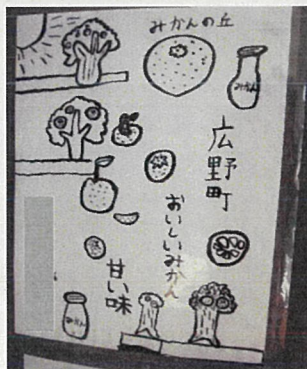 みかんの丘
みかん
広野町
おいしいみかん
甘い味
みかん